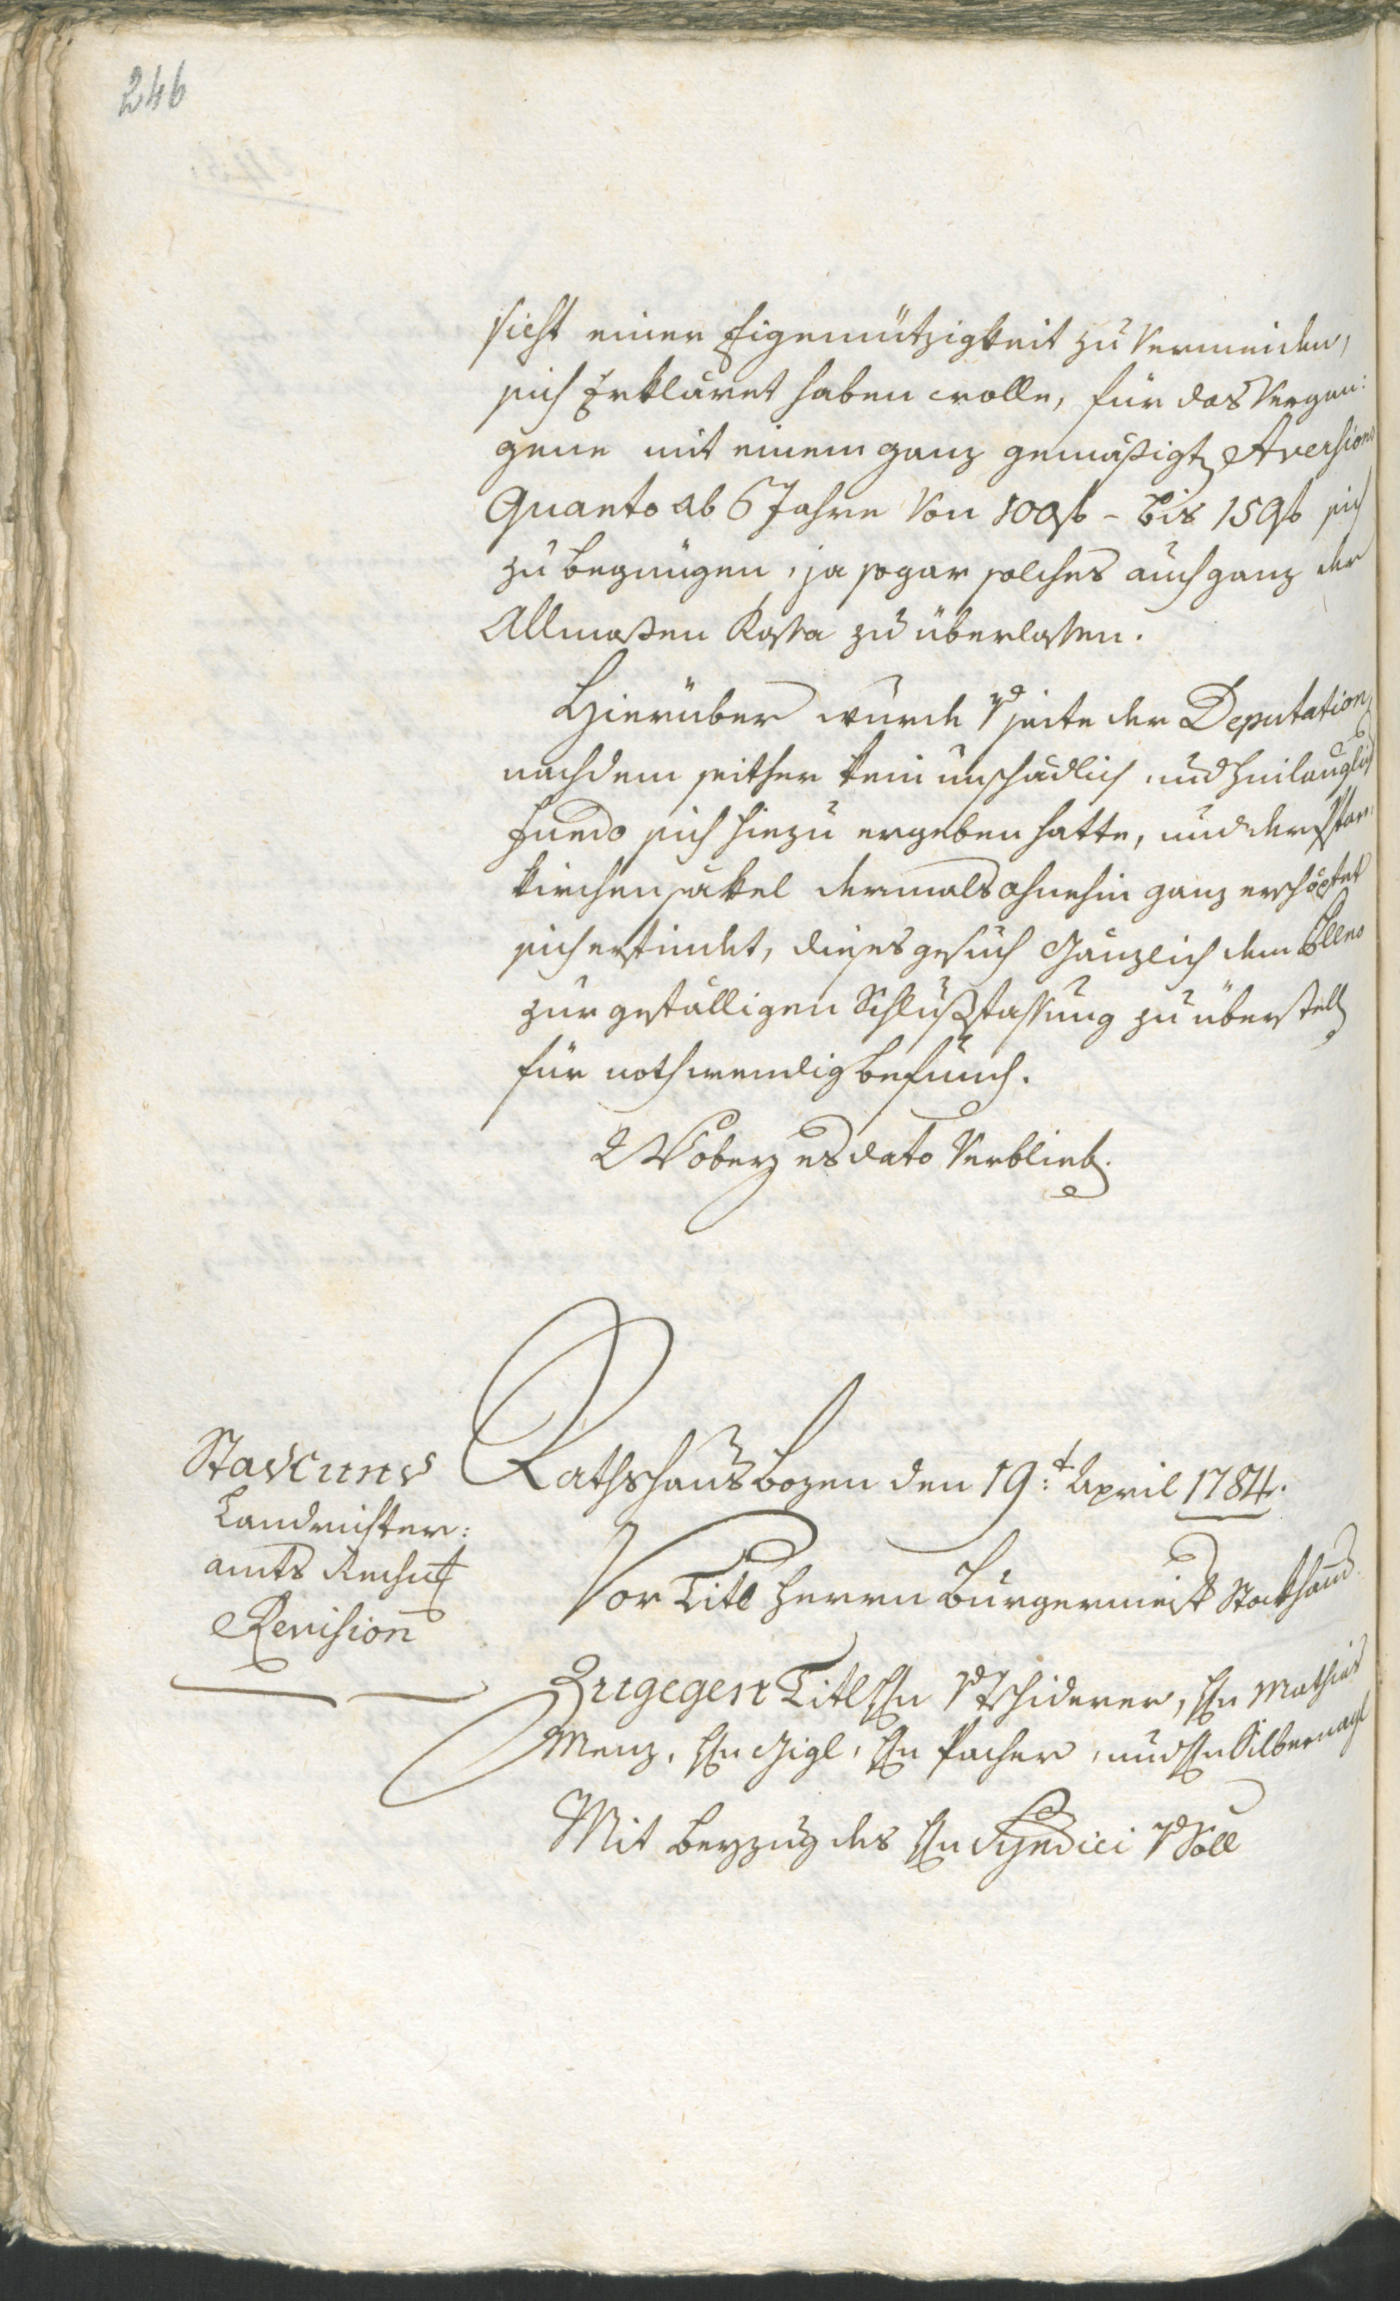 246
sicht einer Eigennützigkeit zu vermeiden,
sich Erkläret haben wolle, für das Vergan:
gene mit einem ganz gemäßigten Aversions
Quanto ab 6 Jahre von 100 f – bis 150 f sich
zu begnügen, ja sogar solches auch ganz der
Allmosen Kassa zu überlassen.
Hierüber wurde von seite der Deputation,
nachdem seither kein unschädlich und hinlänglich
Fundo sich hiezu ergeben hatte, und der Pfarr
kirchen säkel dermals ohnehin ganz erschöpfet
sich erfindet, dieses gesuch Gänzlich dem Pleno
zur gefälligen Schlußfassung zu überstellen
für nothwendig befunden.
Wobey es dato Verblieben.
Stadt und
Landrichter:
amts Rechnung
Revision
Rathshaus bozen den 19:t April 1784.
Vor Titl Herrn Burgermeister Stockhamer
Zugegen Titl Hn v Tschiderer, Hn Mathias
Menz, Hn Gigl, Hn Pacher, und Hn Silbernagl
Mit beyzug des Hn Syndici v Söll